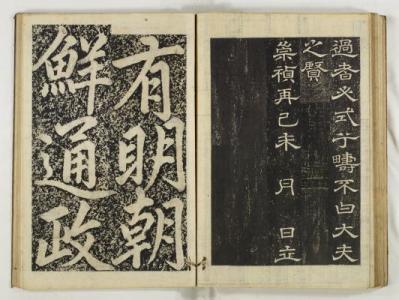 過者必式于疇不曰大夫
之賢
崇禎再己未 月 日立
有明朝
鮮通政